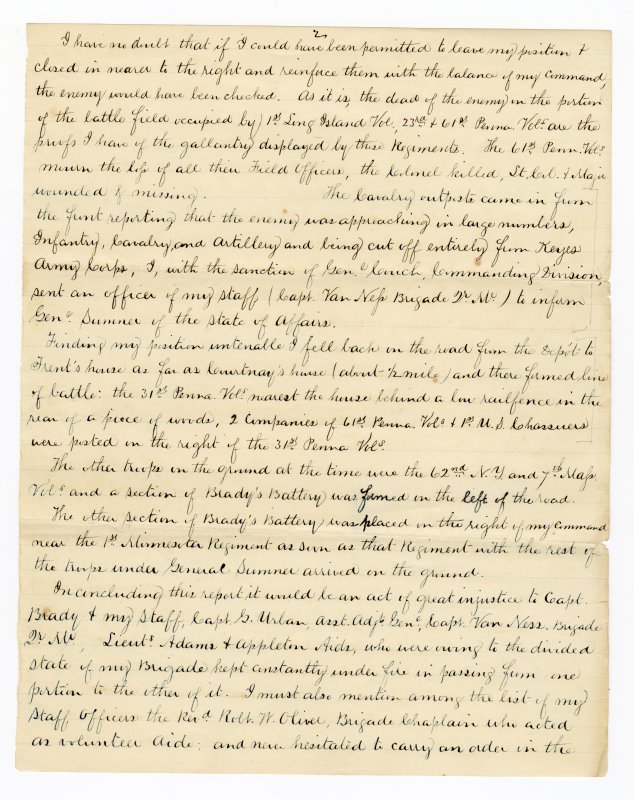 2
I have no doubt that if I could have been permitted to leave my position &
closed in nearer to the right and reinforce them with the balance of my Command,
the enemy would have been checked. As it is, the dead of the enemy on the portion
of the battle field occupied by 1st Long Island Vol, 23rd & 61st Penna. Vols are the
proofs I have of the gallantry displayed by these Regiments. The 61st Penn. Vols.
mourn the loss of all their Field Officers, the Colonel killed, Lt. Col. & Major
wounded & missing. The Cavalry outposts came in from
the front reporting that the enemy was approaching in large numbers,
Infantry, Cavalry, and Artillery and being cut off entirely from Keyes
Army Corps, I, with the sanction of Genl Couch, Commanding Division,
sent an officer of my staff (Capt. Van Ness Brigade Qr. Mr.) to inform
Genl Sumner of the state of Affairs.
Finding my position untenable I fell back on the road from the Depôt to
Trent's house as far as Courtnay's house (about ½ mile) and there formed line
of battle: the 31st Penna. Vols. nearest the house behind a low railfence in the
rear of a piece of woods, 2 Companies of 61st Penna. Vols & 1st U.S. Chassuers
were posted on the right of the 31st Penna Vols.
The other troops on the ground at the time were the 62nd N.Y. and 7th Mass.
Vols and a section of Brady's Battery was formed on the left of the road.
The other section of Brady's Battery was placed on the right of my Command
near the 1st Minnesota Regiment as soon as that Regiment with the rest of
the troops under General Sumner arrived on the ground.
In concluding this report it would be an act of great injustice to Capt.
Brady & my Staff, Capt. G. Urban, asst. Adjt. Genl, Capt. Van Ness. Brigade
Qr. Mr., Lieuts. Adams & Appleton Aids, who were owing to the divided
state of my Brigade kept constantly under fire in passing from one
portion to the other of it. I must also mention among the list of my
Staff Officers the Revd Robt. W. Oliver, Brigade Chaplain who acted
as volunteer Aide: and never hesitated to carry an order in the